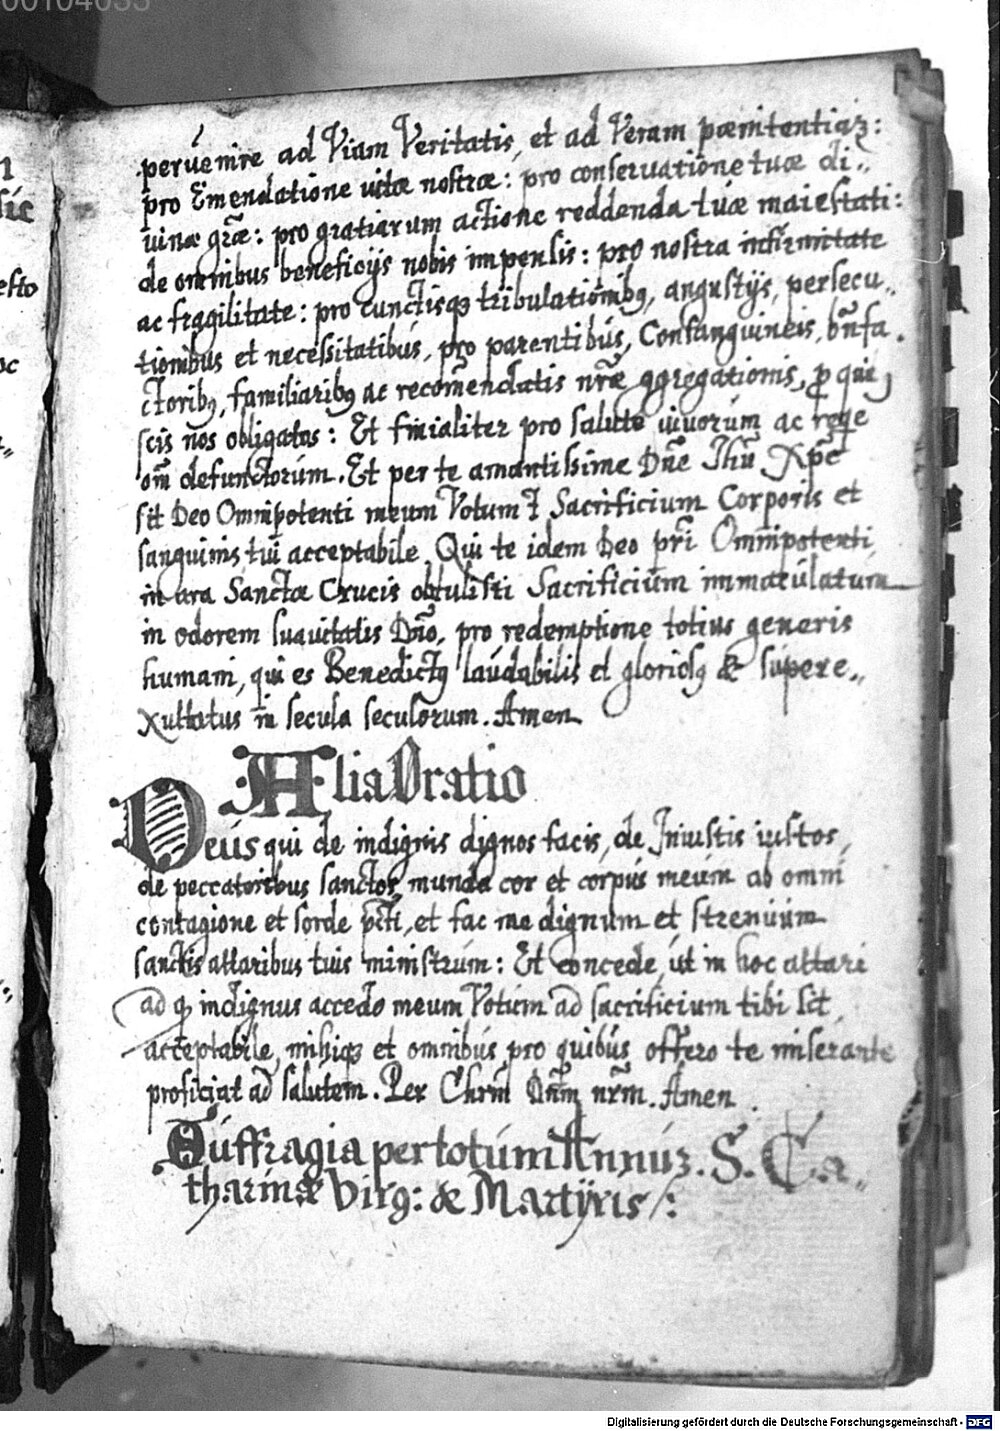 00104033
pervenire ad Viam Veritatis, et ad Veram pœnitentiaʒ:
pro Emendatione vitæ nostræ: pro conservatione tuæ di..
vinæ grãe: pro gratiarum actione reddenda tuæ maiestati:
de omnibus beneficijs nobis impensis: pro nostra infirmitate
ac fragilitate: pro cunctisqꝫ tribulationibꝰ, angustijs, persecu..
tionibus et necessitatibús, pro parentibús, Consanguineis, bñfa.
ctoribꝰ, familiaribꝰ ac recom̃endatis nr̃æ ꝯgregationis, ꝓ quiꝰ
scis nos obligatos: Et finialiter pro salute vivorúm ac reqe
om̃ defunctorúm. Et per te amantissime Dñe Jhũ Xp̃e
sit Deo Omnipotenti meum Votum Ꞇ Sacrificium Corporis et
sanguinis tui acceptabile, Qui te idem Deo p̃ri Omnipotenti
in ara Sanctæ Crucis obtulisti Sacrificiúm immaculatum
in odorem suavitatis Dño, pro redemptione totius generis
humani, qui es Benedictꝰ laúdabilis et gloriosꝰ & súpere..
xultatus in secula seculorum. Amen
Alia Oratio
Deús qui de indignis dignos facis, de Iniustis iustos,
de peccatoribus sanctos, munda cor et corpús meúm ab omni
contagione et sorde p̃cti, et fac me dignum et strenúúm
sanctis altaribus tuis ministrúm: Et concede, út in hoc altari
ad q̃ indignus accedo meum Votúm ad sacrificium tibi sit
acceptabile, mihiqꝫ et omnibús pro quibús offero te miserante
proficiat ad salutem. Per Chrm̃ Dñm nr̃m. Amen.
Súffragia per totúm Annúʒ. S. Ca„
tharinæ Virg: & Martÿris /:
Digitalisierung gefördert durch die Deutsche Forschungsgemeinschaft - DFG